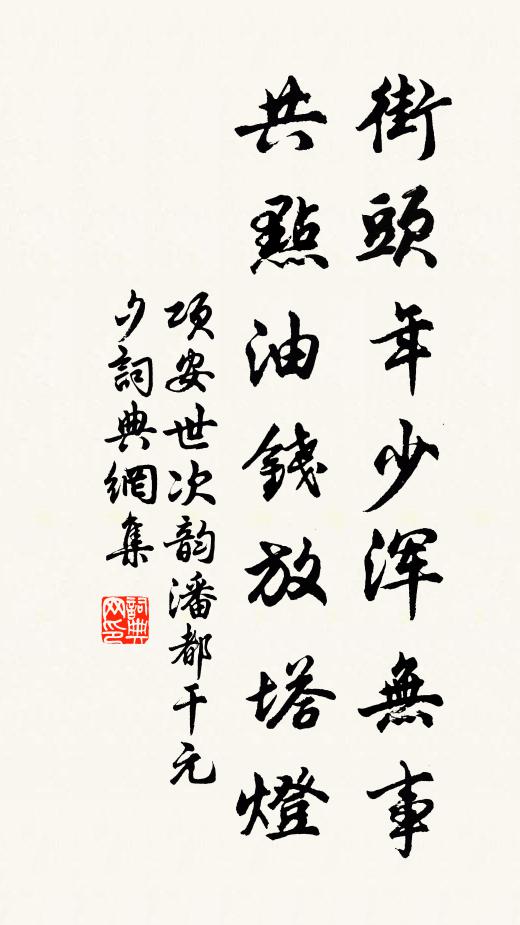 街頭年少浑無事
共點油錢放塔燈
项安世次韵潘都干元
夕詞典網集
詞典网印